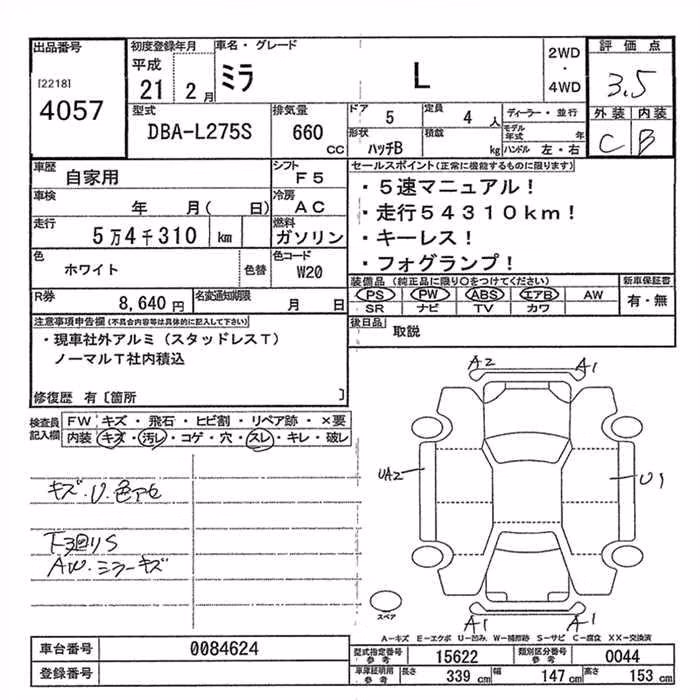 出品番号 初度登録年月 車名・グレード 評価点
[2218] 平成 ミラ L 2WD ・ 4WD 3.5
4057 21 2月
型式 排気量 ドア 5 定員 4人 ディーラー・並行 外装 内装
DBA-L275S 660 CC 形状 ハッチB 積載 kg モデル年式 年 C B
ハンドル 左・右
車歴 自家用 シフト F5 セールスポイント(正常に機能するものに限ります)
車検 年 月( 日) 冷房 AC ・5速マニュアル!
走行 5万4千310 km 燃料 ガソリン ・走行54310km!
・キーレス!
色 ホワイト 色替 色コード W20 ・フォグランプ!
R券 8,640円 名変通知期限 月 日 装備品(純正品に限り○をつけてください) 新車保証書
PS PW ABS エアB AW 有・無
SR ナビ TV カワ
注意事項申告欄(不具合内容等は具体的に記入して下さい) 後日品 取説
・現車社外アルミ(スタッドレスT)
ノーマルT社内積込
修復歴 有〔箇所 〕
検査員記入欄 FW キズ・飛石・ヒビ割・リペア跡・×要
内装 キズ・汚レ・コゲ・穴・スレ・キレ・破レ
A2 A1
UA2 U1
キズ.U.色アセ
AW.ミラーキズ
スペア
A1 A1
A-キズ E-エクボ U-凹み W-補修跡 S-サビ C-腐食 XX-交換済
車台番号 0084624 型式指定番号 参考 15622 類別区分番号 参考 0044
登録番号 車庫証明用 参考 長さ 339 cm 幅 147 cm 高さ 153 cm